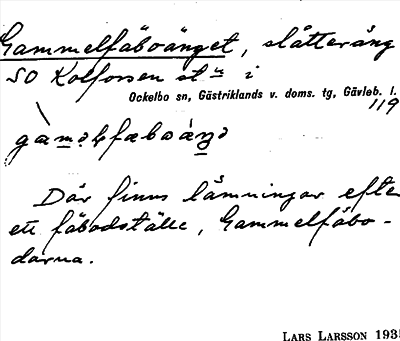 Gammelfäboänget, slåtteräng
SO Kolforsen st:n i
Ockelbo sn, Gästriklands v. doms. tg, Gävleb. l.
119
Där finns lämningar efter
ett fäbodställe, Gammelfäbo-
darna.
LARS LARSSON 1935